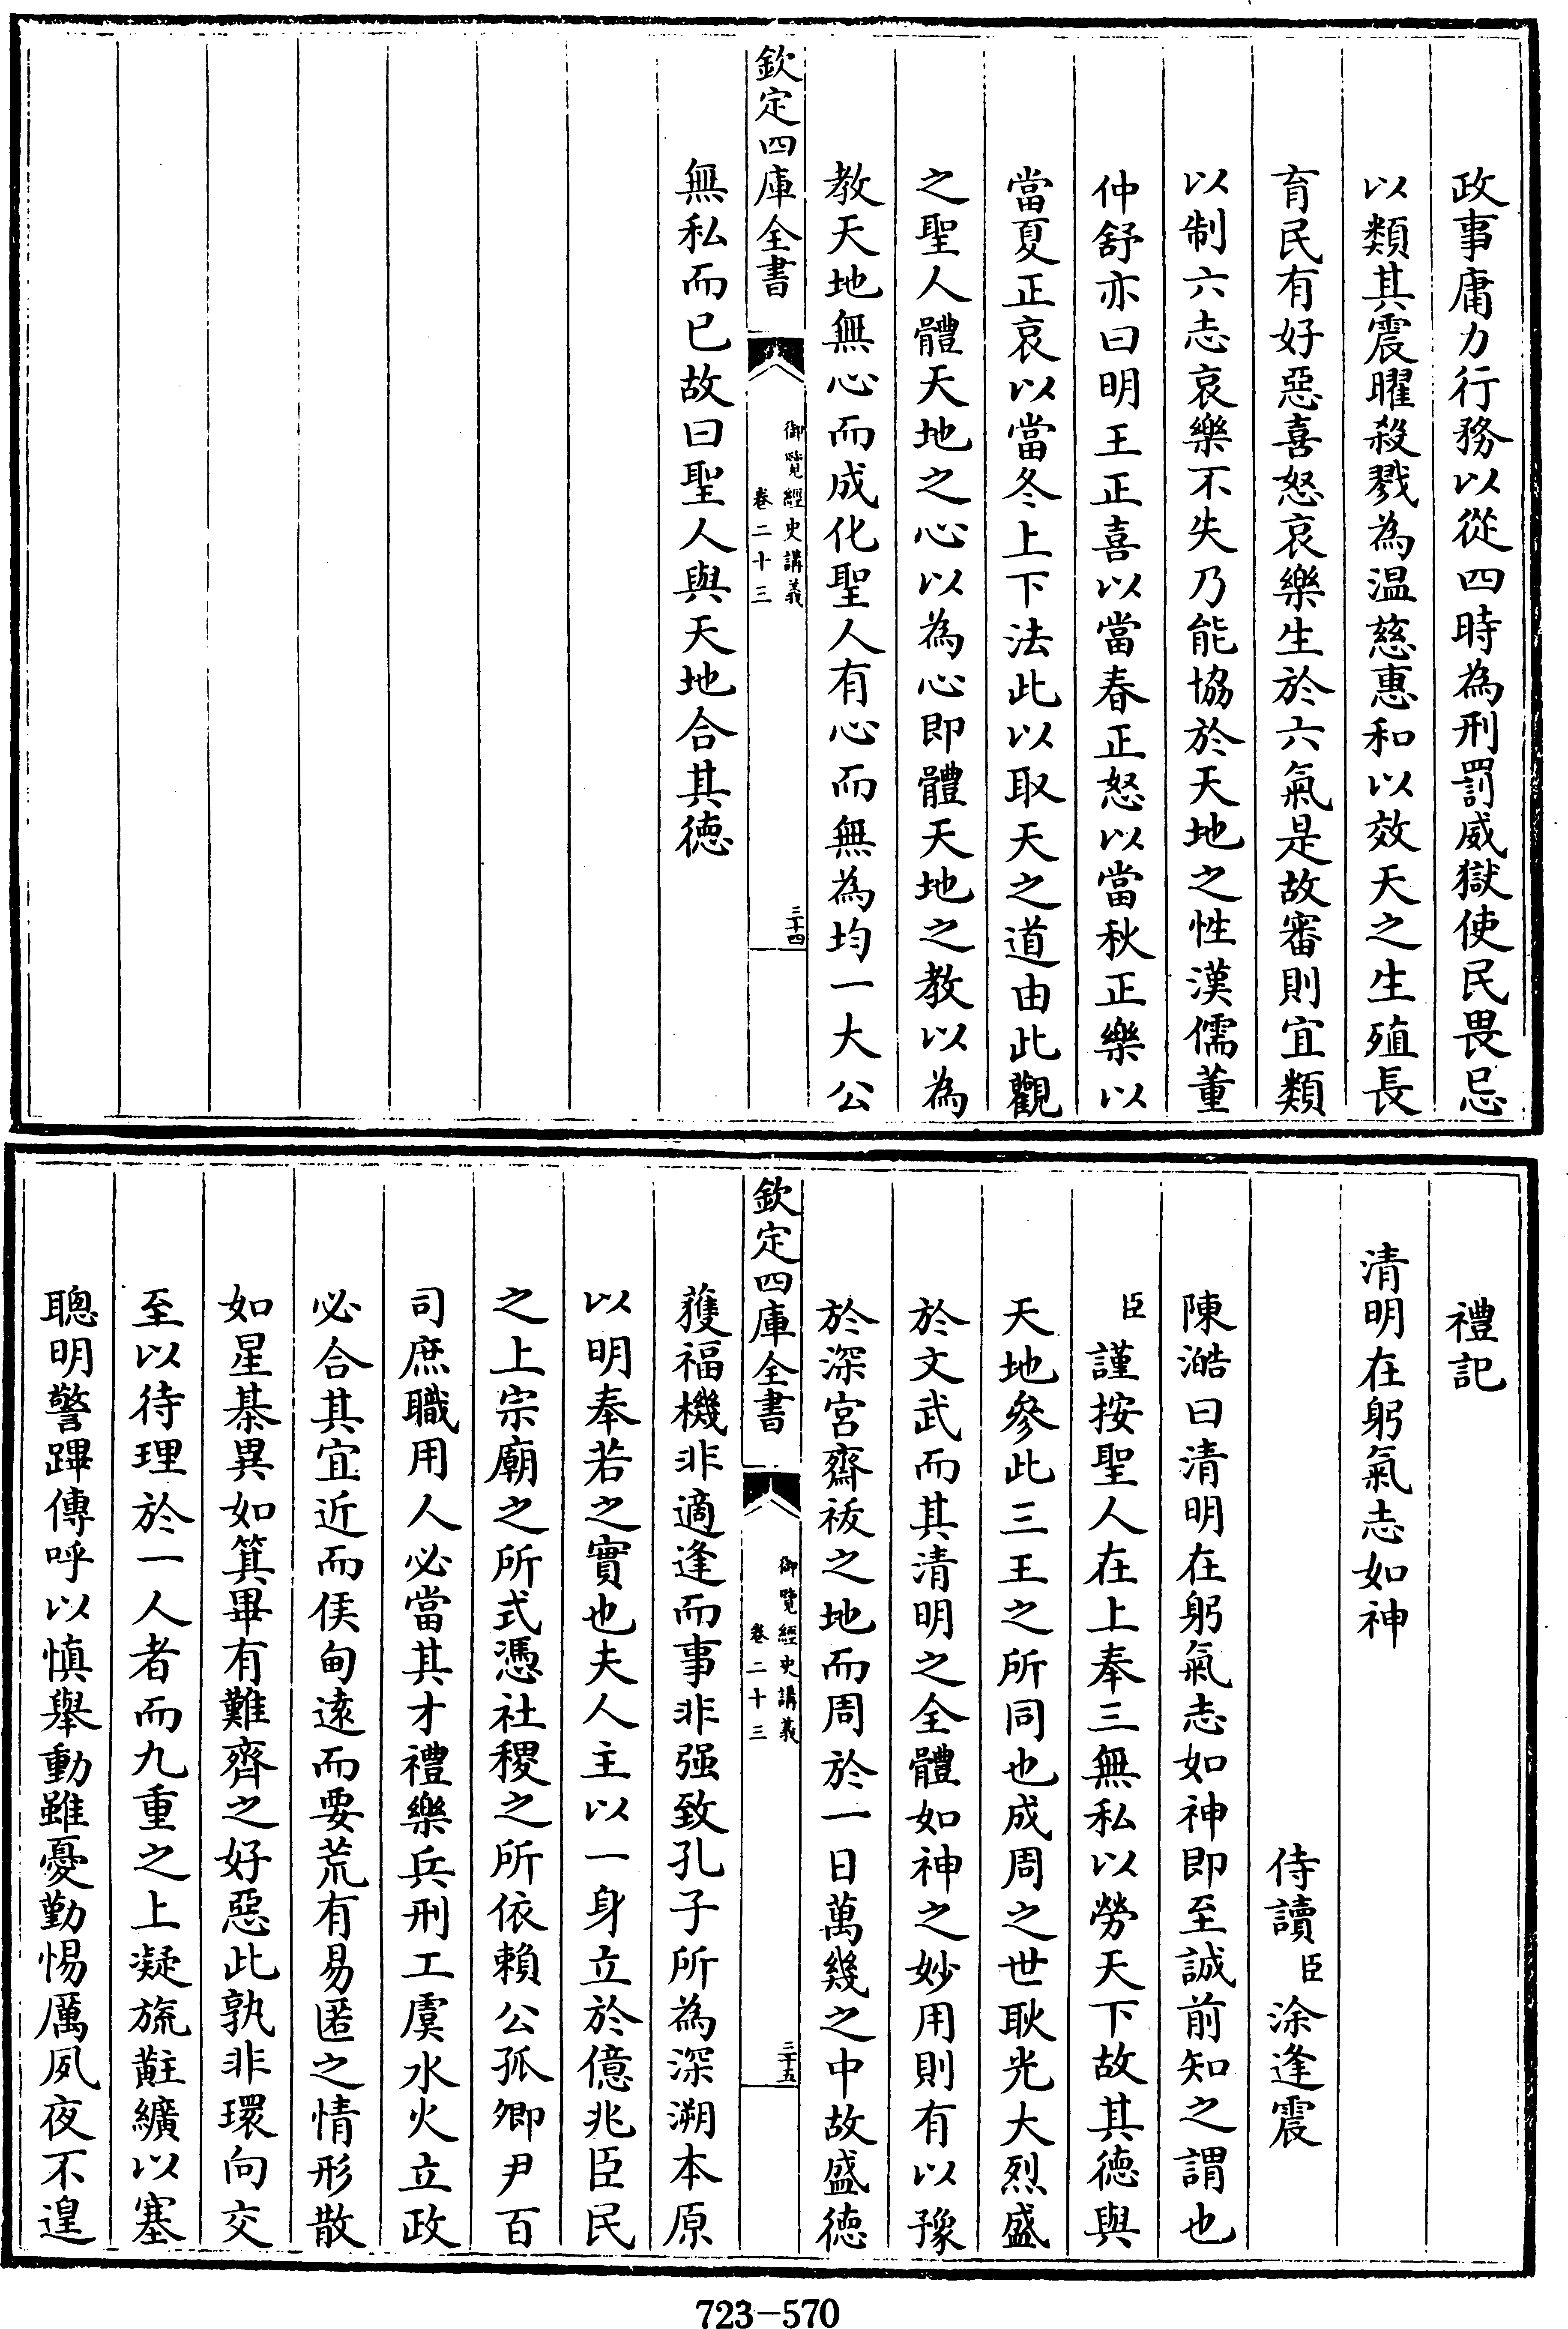 政事庸力行務以從四時為刑罰威獄使民畏忌
以類其震曜殺戮為温慈惠和以效天之生殖長
育民有好惡喜怒哀樂生於六氣是故審則宜類
以制六志哀樂不失乃能協於天地之性漢儒董
仲舒亦曰明王正喜以當春正怒以當秋正樂以
當夏正哀以當冬上下法此以取天之道由此觀
之聖人體天地之心以為心即體天地之教以為
教天地無心而成化聖人有心而無為均一大公
欽定四庫全書
御覽經史講義
卷二十三
三十四
無私而已故曰聖人與天地合其德
禮記
清明在躬氣志如神
侍讀臣涂逢震
陳澔曰清明在躬氣志如神即至誠前知之謂也
臣謹按聖人在上奉三無私以勞天下故其德與
天地參此三王之所同也成周之世耿光大烈盛
於文武而其清明之全體如神之妙用則有以豫
於深宮齋祓之地而周於一日萬幾之中故盛德
欽定四庫全書
御覽經史講義
卷二十三
三十五
蒦福機非適逢而事非强致孔子所為深溯本原
以明奉若之實也夫人主以一身立於億兆臣民
之上宗廟之所式憑社稷之所依賴公孤卿尹百
司庶職用人必當其才禮樂兵刑工虞水火立政
必合其宜近而侯甸遠而要荒有易匿之情形散
如星棊異如箕畢有難齊之好惡此孰非環向交
至以待理於一人者而九重之上凝旒黈纊以塞
聰明警蹕傳呼以慎舉動雖憂勤惕厲夙夜不遑
723-570